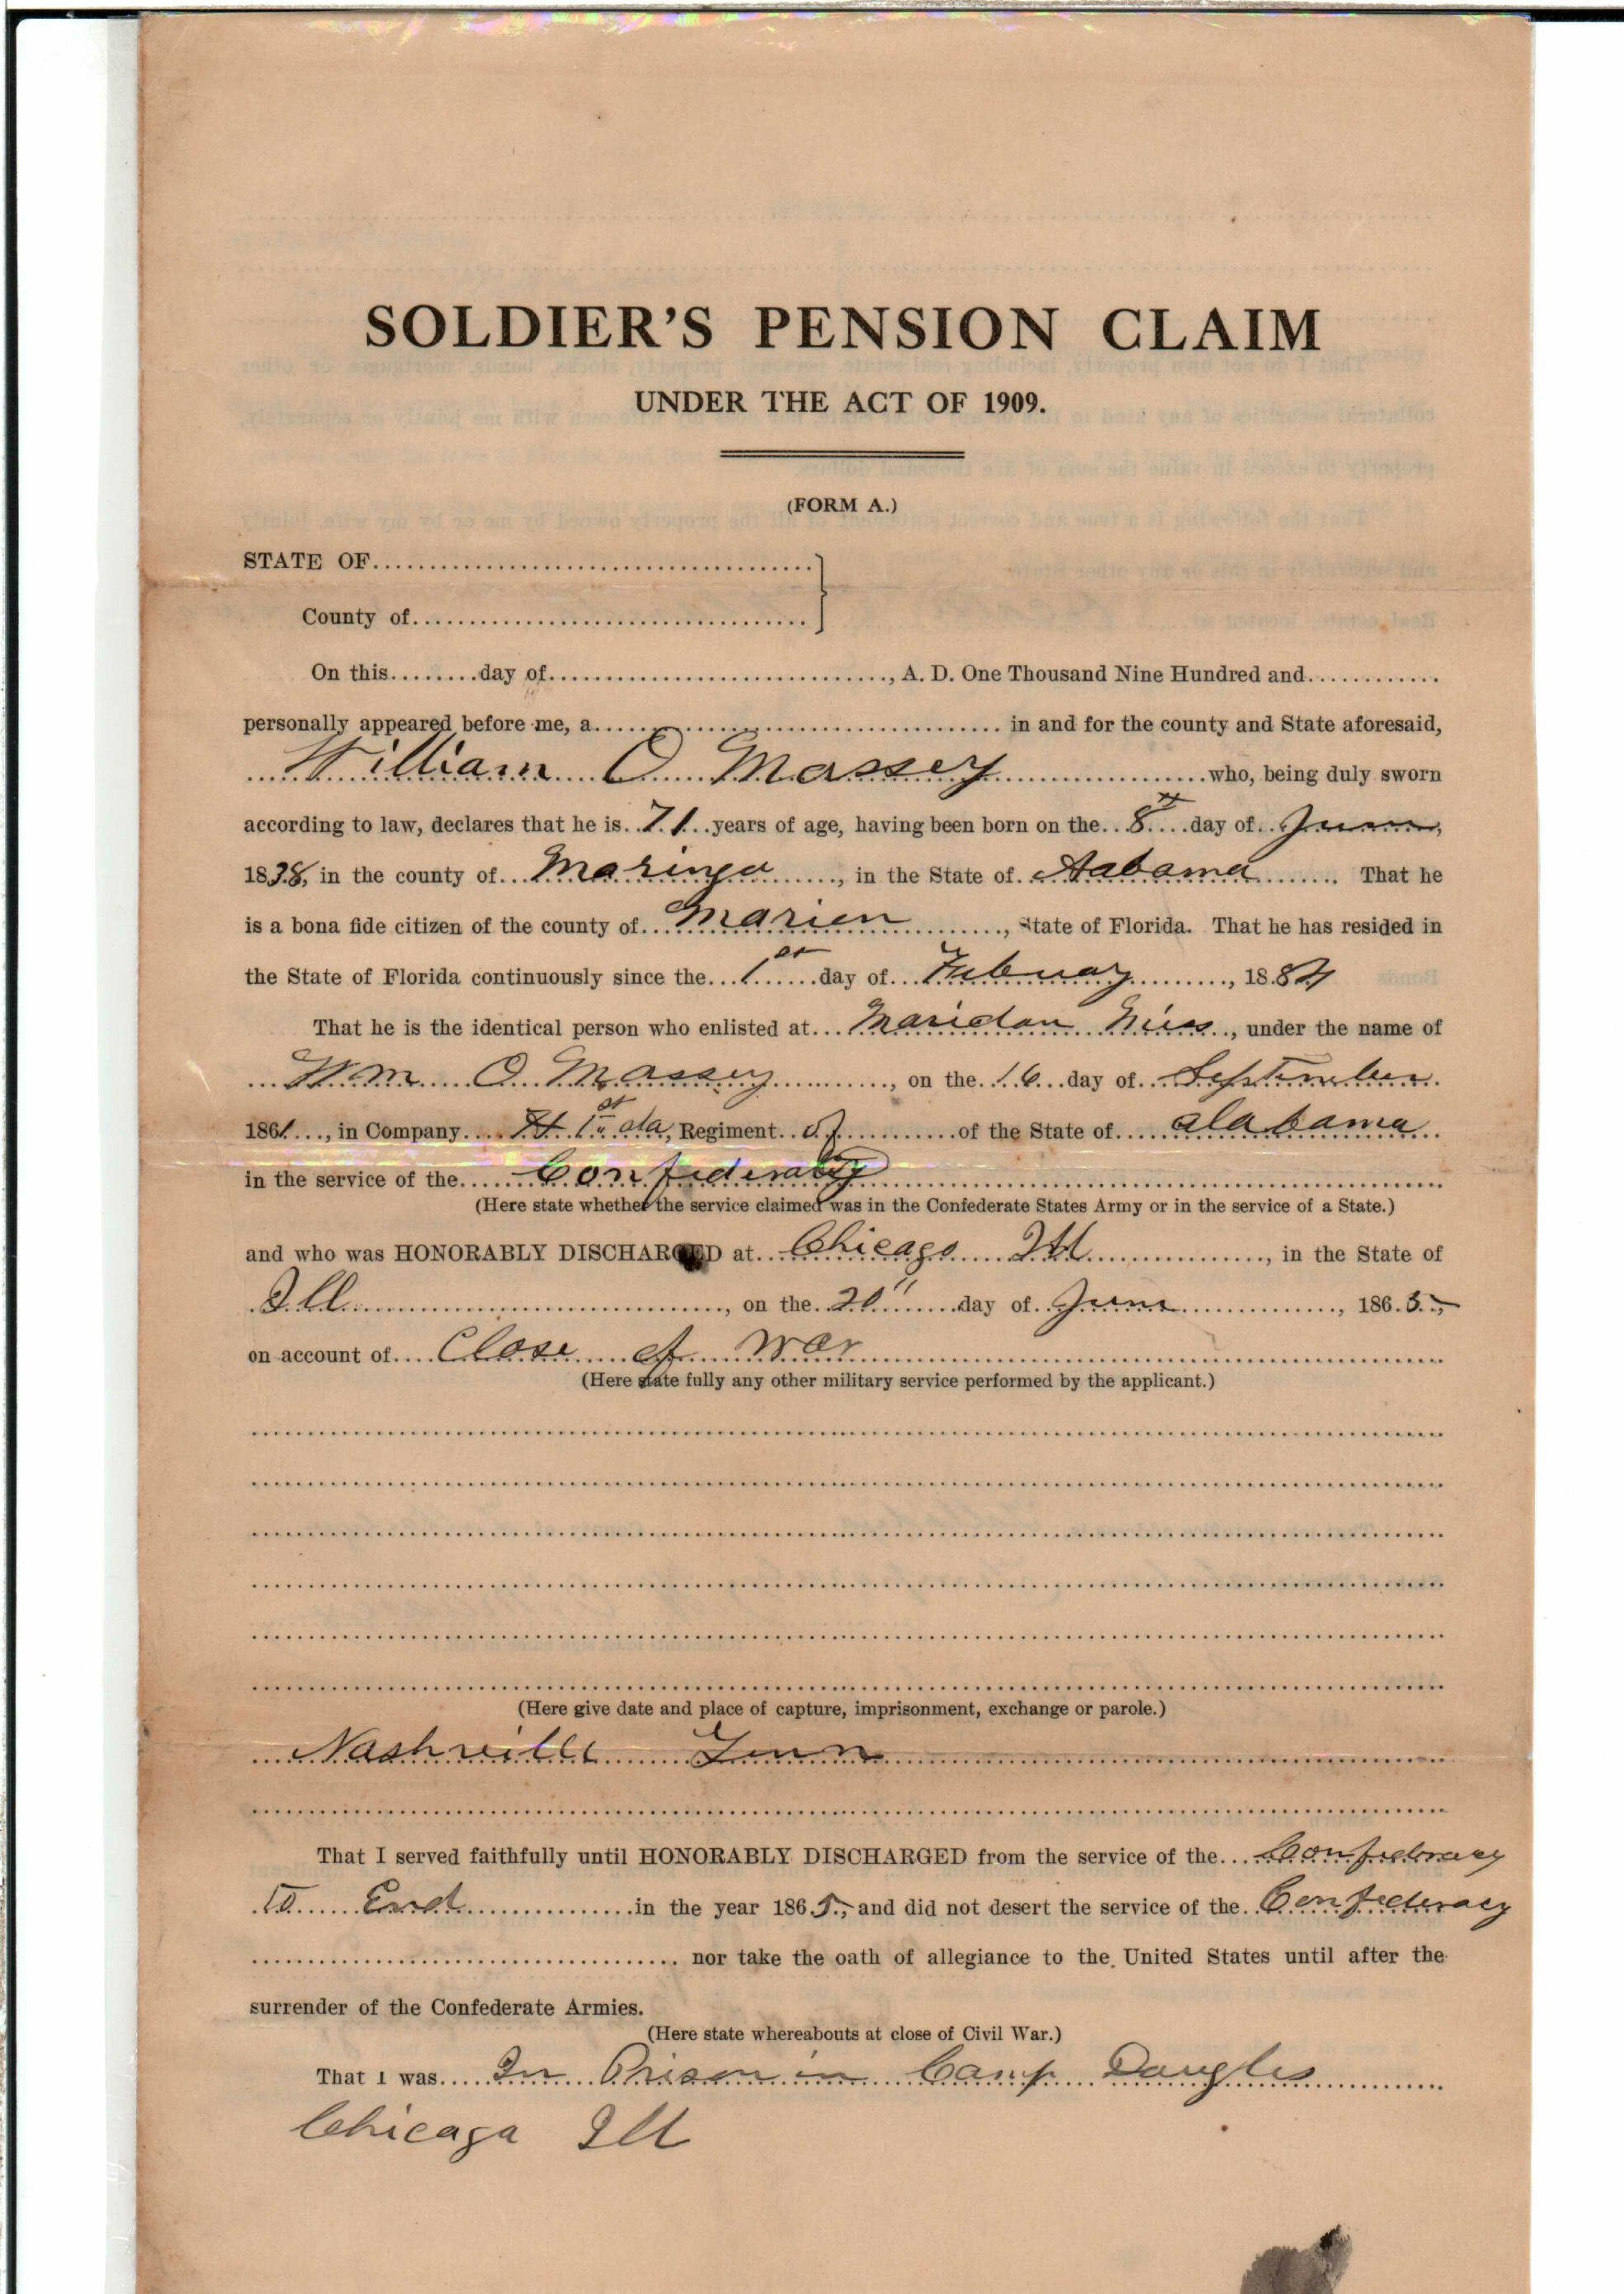 SOLDIER'S PENSION CLAIM
UNDER THE ACT OF 1909.
(FORM A.)
STATE OF
County of
On this day of , A. D. One Thousand Nine Hundred and
personally appeared before me, a in and for the county and State aforesaid,
William O Massey who, being duly sworn
according to law, declares that he is 71 years of age, having been born on the 8th day of June,
1838, in the county of Maringo, in the State of Alabama. That he
is a bona fide citizen of the county of Marion, State of Florida. That he has resided in
the State of Florida continuously since the 1st day of Febuary, 1884
That he is the identical person who enlisted at Maridan Miss, under the name of
Wm O Massey, on the 16 day of September
1861, in Company H 1st ala, Regiment of the State of alabama
in the service of the Confederacy
(Here state whether the service claimed was in the Confederate States Army or in the service of a State.)
and who was HONORABLY DISCHARGED at Chicago Ill, in the State of
Ill, on the 20" day of June, 1865,
on account of Close of War
(Here state fully any other military service performed by the applicant.)
(Here give date and place of capture, imprisonment, exchange or parole.)
Nashville Tenn
That I served faithfully until HONORABLY DISCHARGED from the service of the Confederacy
To End in the year 1865, and did not desert the service of the Confederacy
nor take the oath of allegiance to the United States until after the
surrender of the Confederate Armies.
(Here state whereabouts at close of Civil War.)
That I was In Prison in Camp Douglas
Chicago Ill